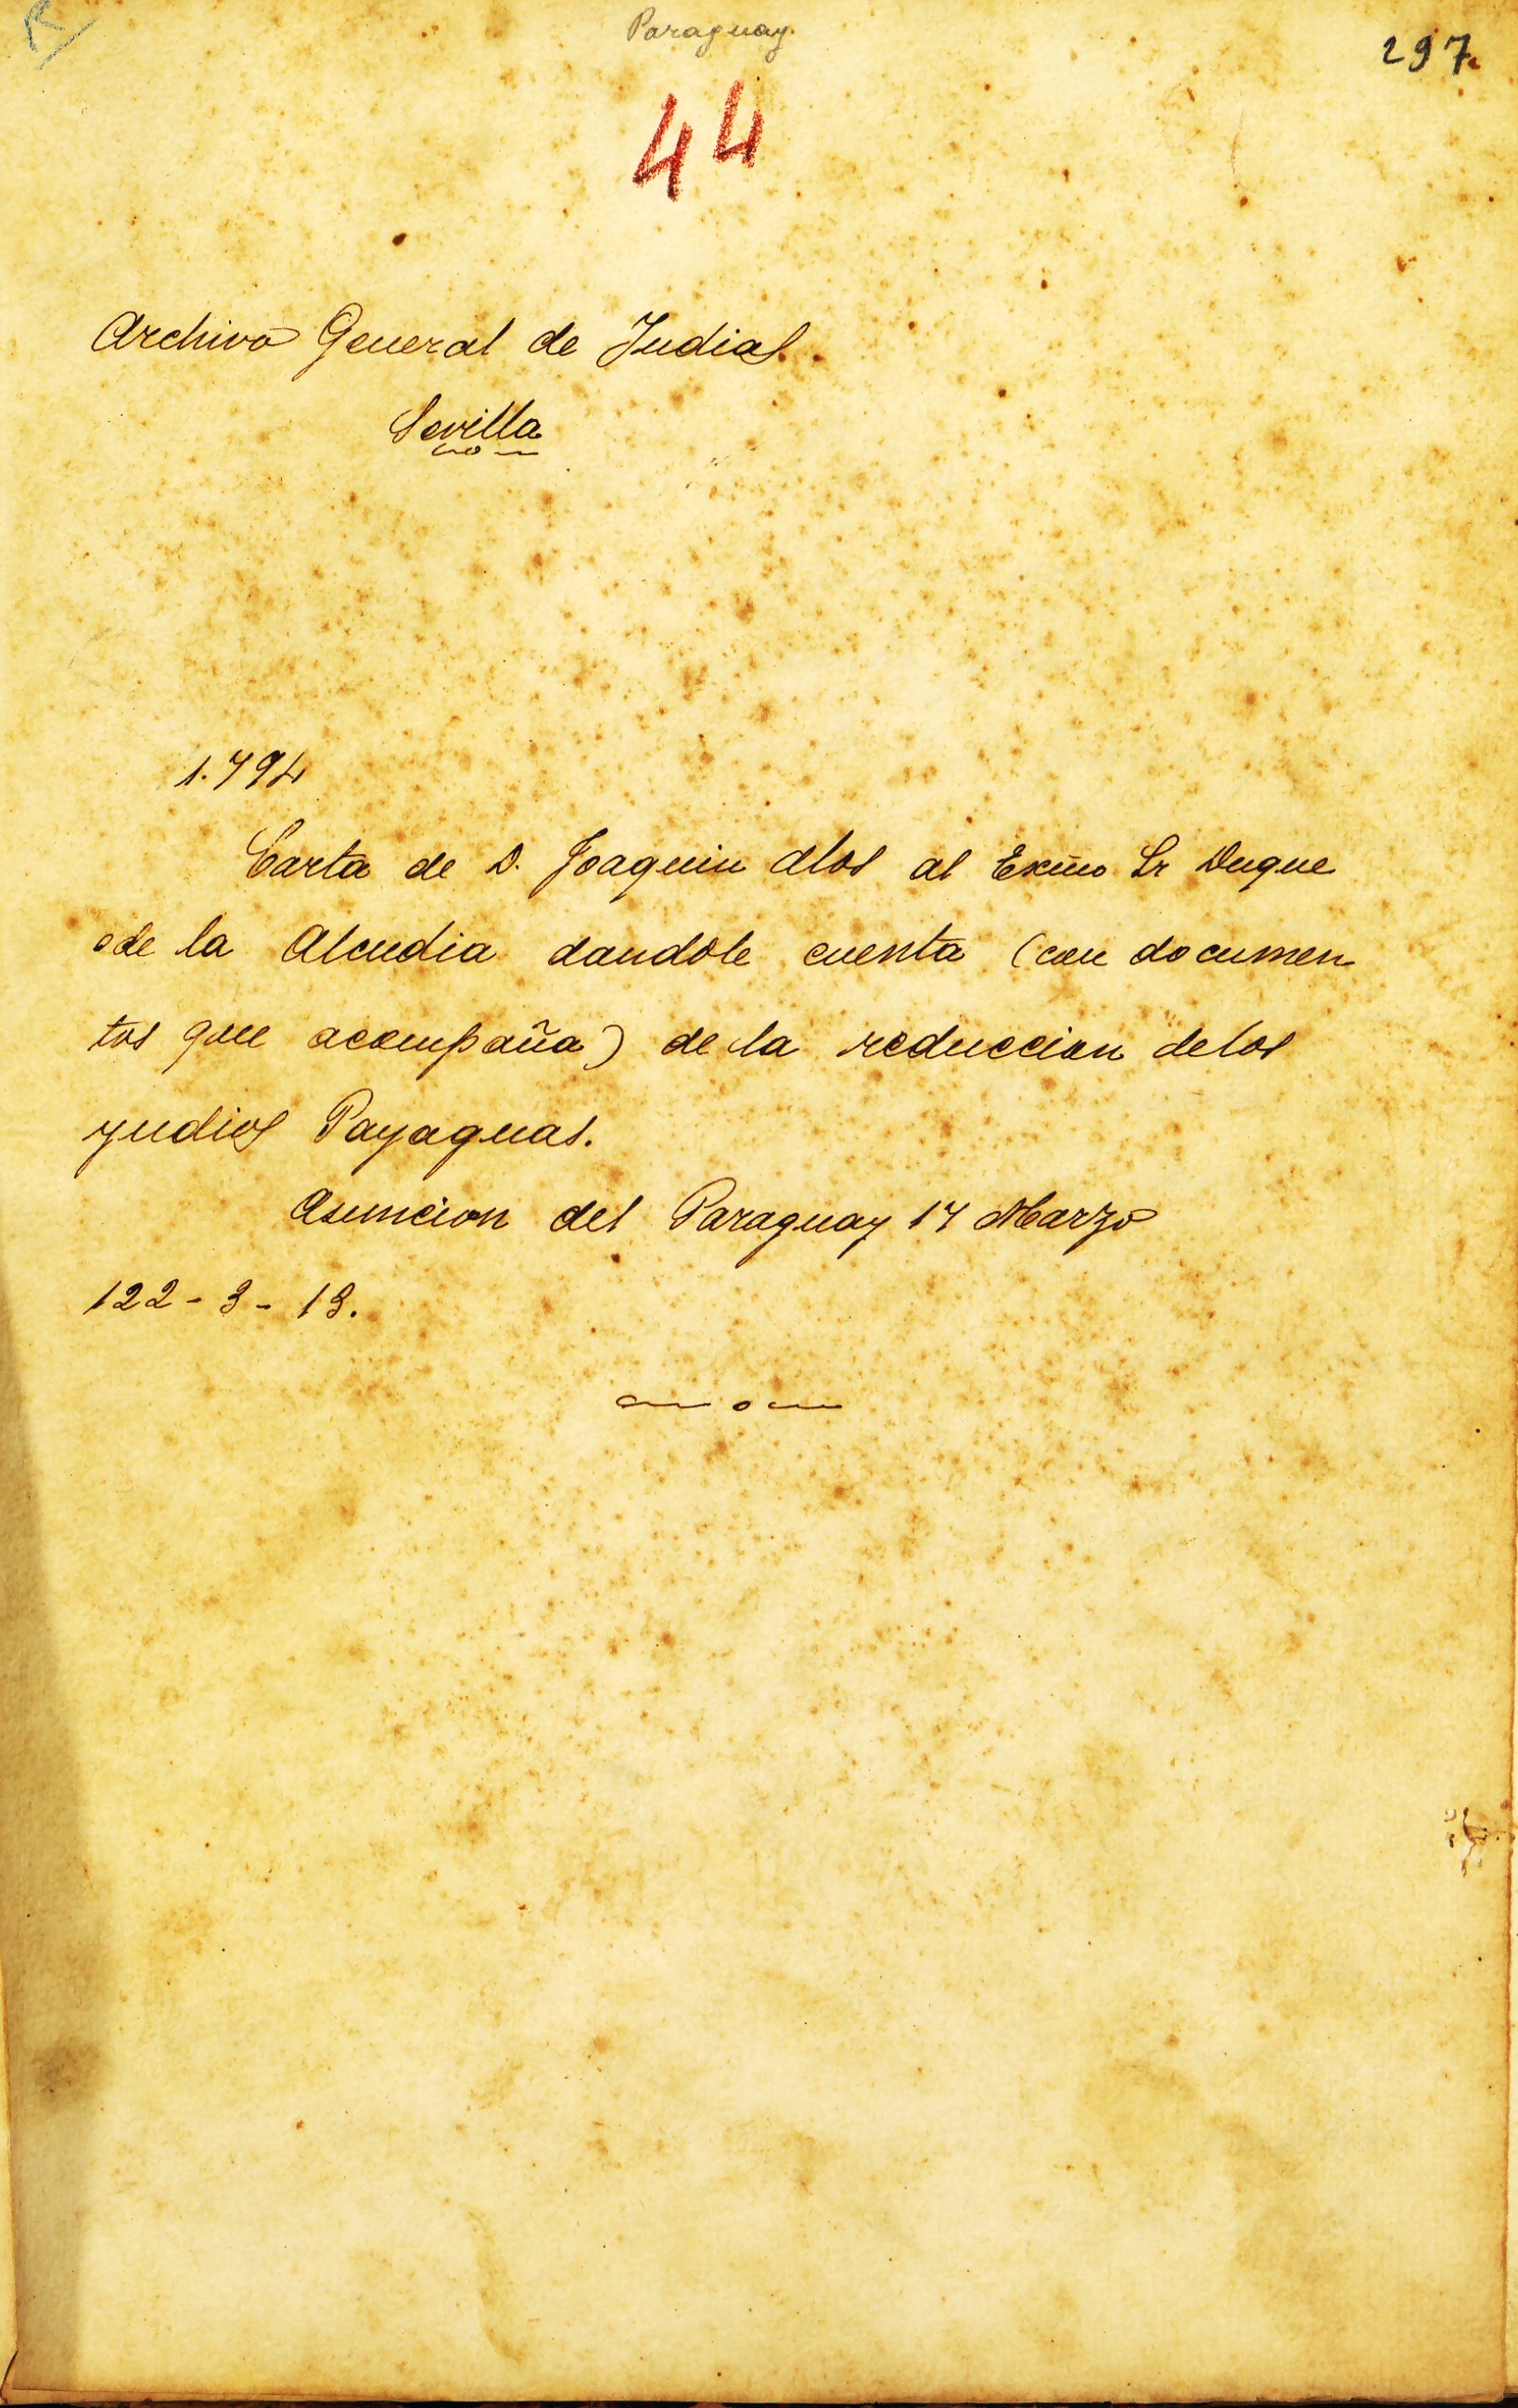 Paraguay.
297.
44
Archivo General de Indias.
Sevilla
1.794
Carta de D. Joaquin Alos al Exmo Sr Duque
de la Alcudia dandole cuenta (con documen
tos que acompaña) de la reduccion de los
yndios Payaguas.
Asuncion del Paraguay 17 Marzo
122-3-13.